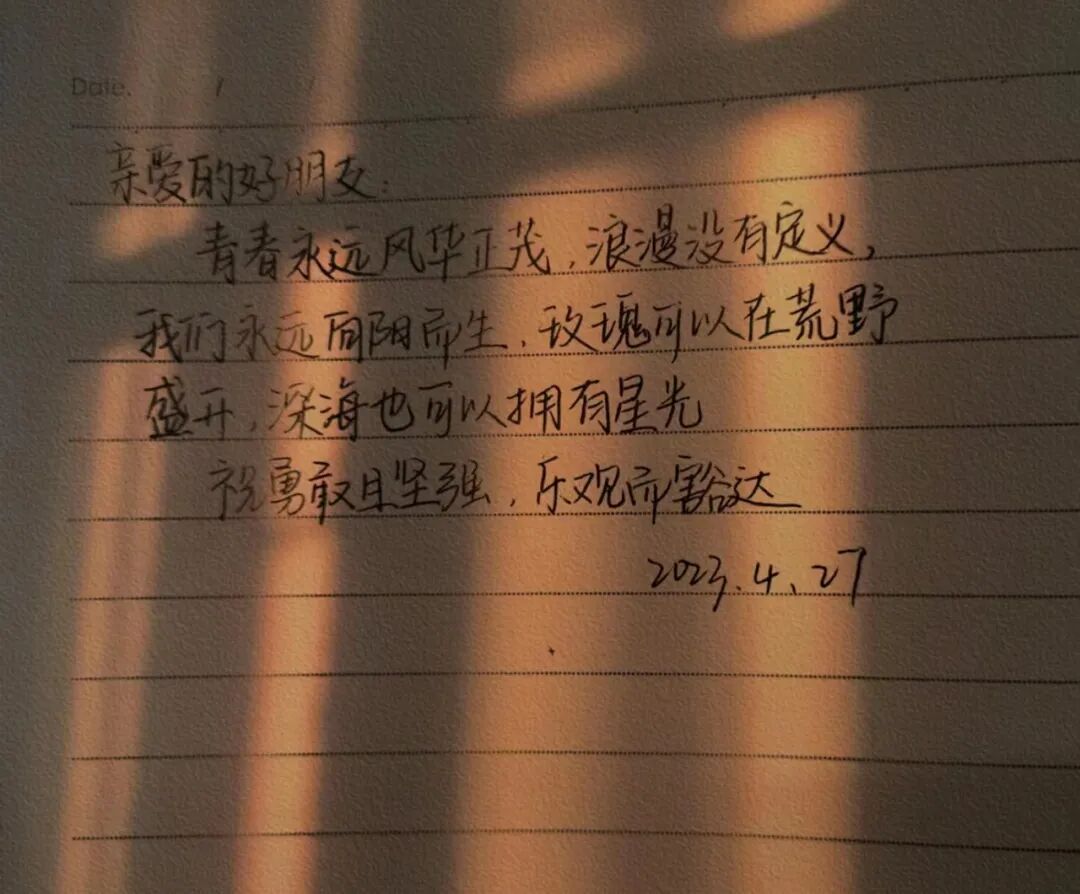 Date. / /
亲爱的好朋友:
青春永远风华正茂,浪漫没有定义,
我们永远向阳而生,玫瑰可以在荒野
盛开,深海也可以拥有星光
祝勇敢且坚强,乐观而豁达
2023.4.27